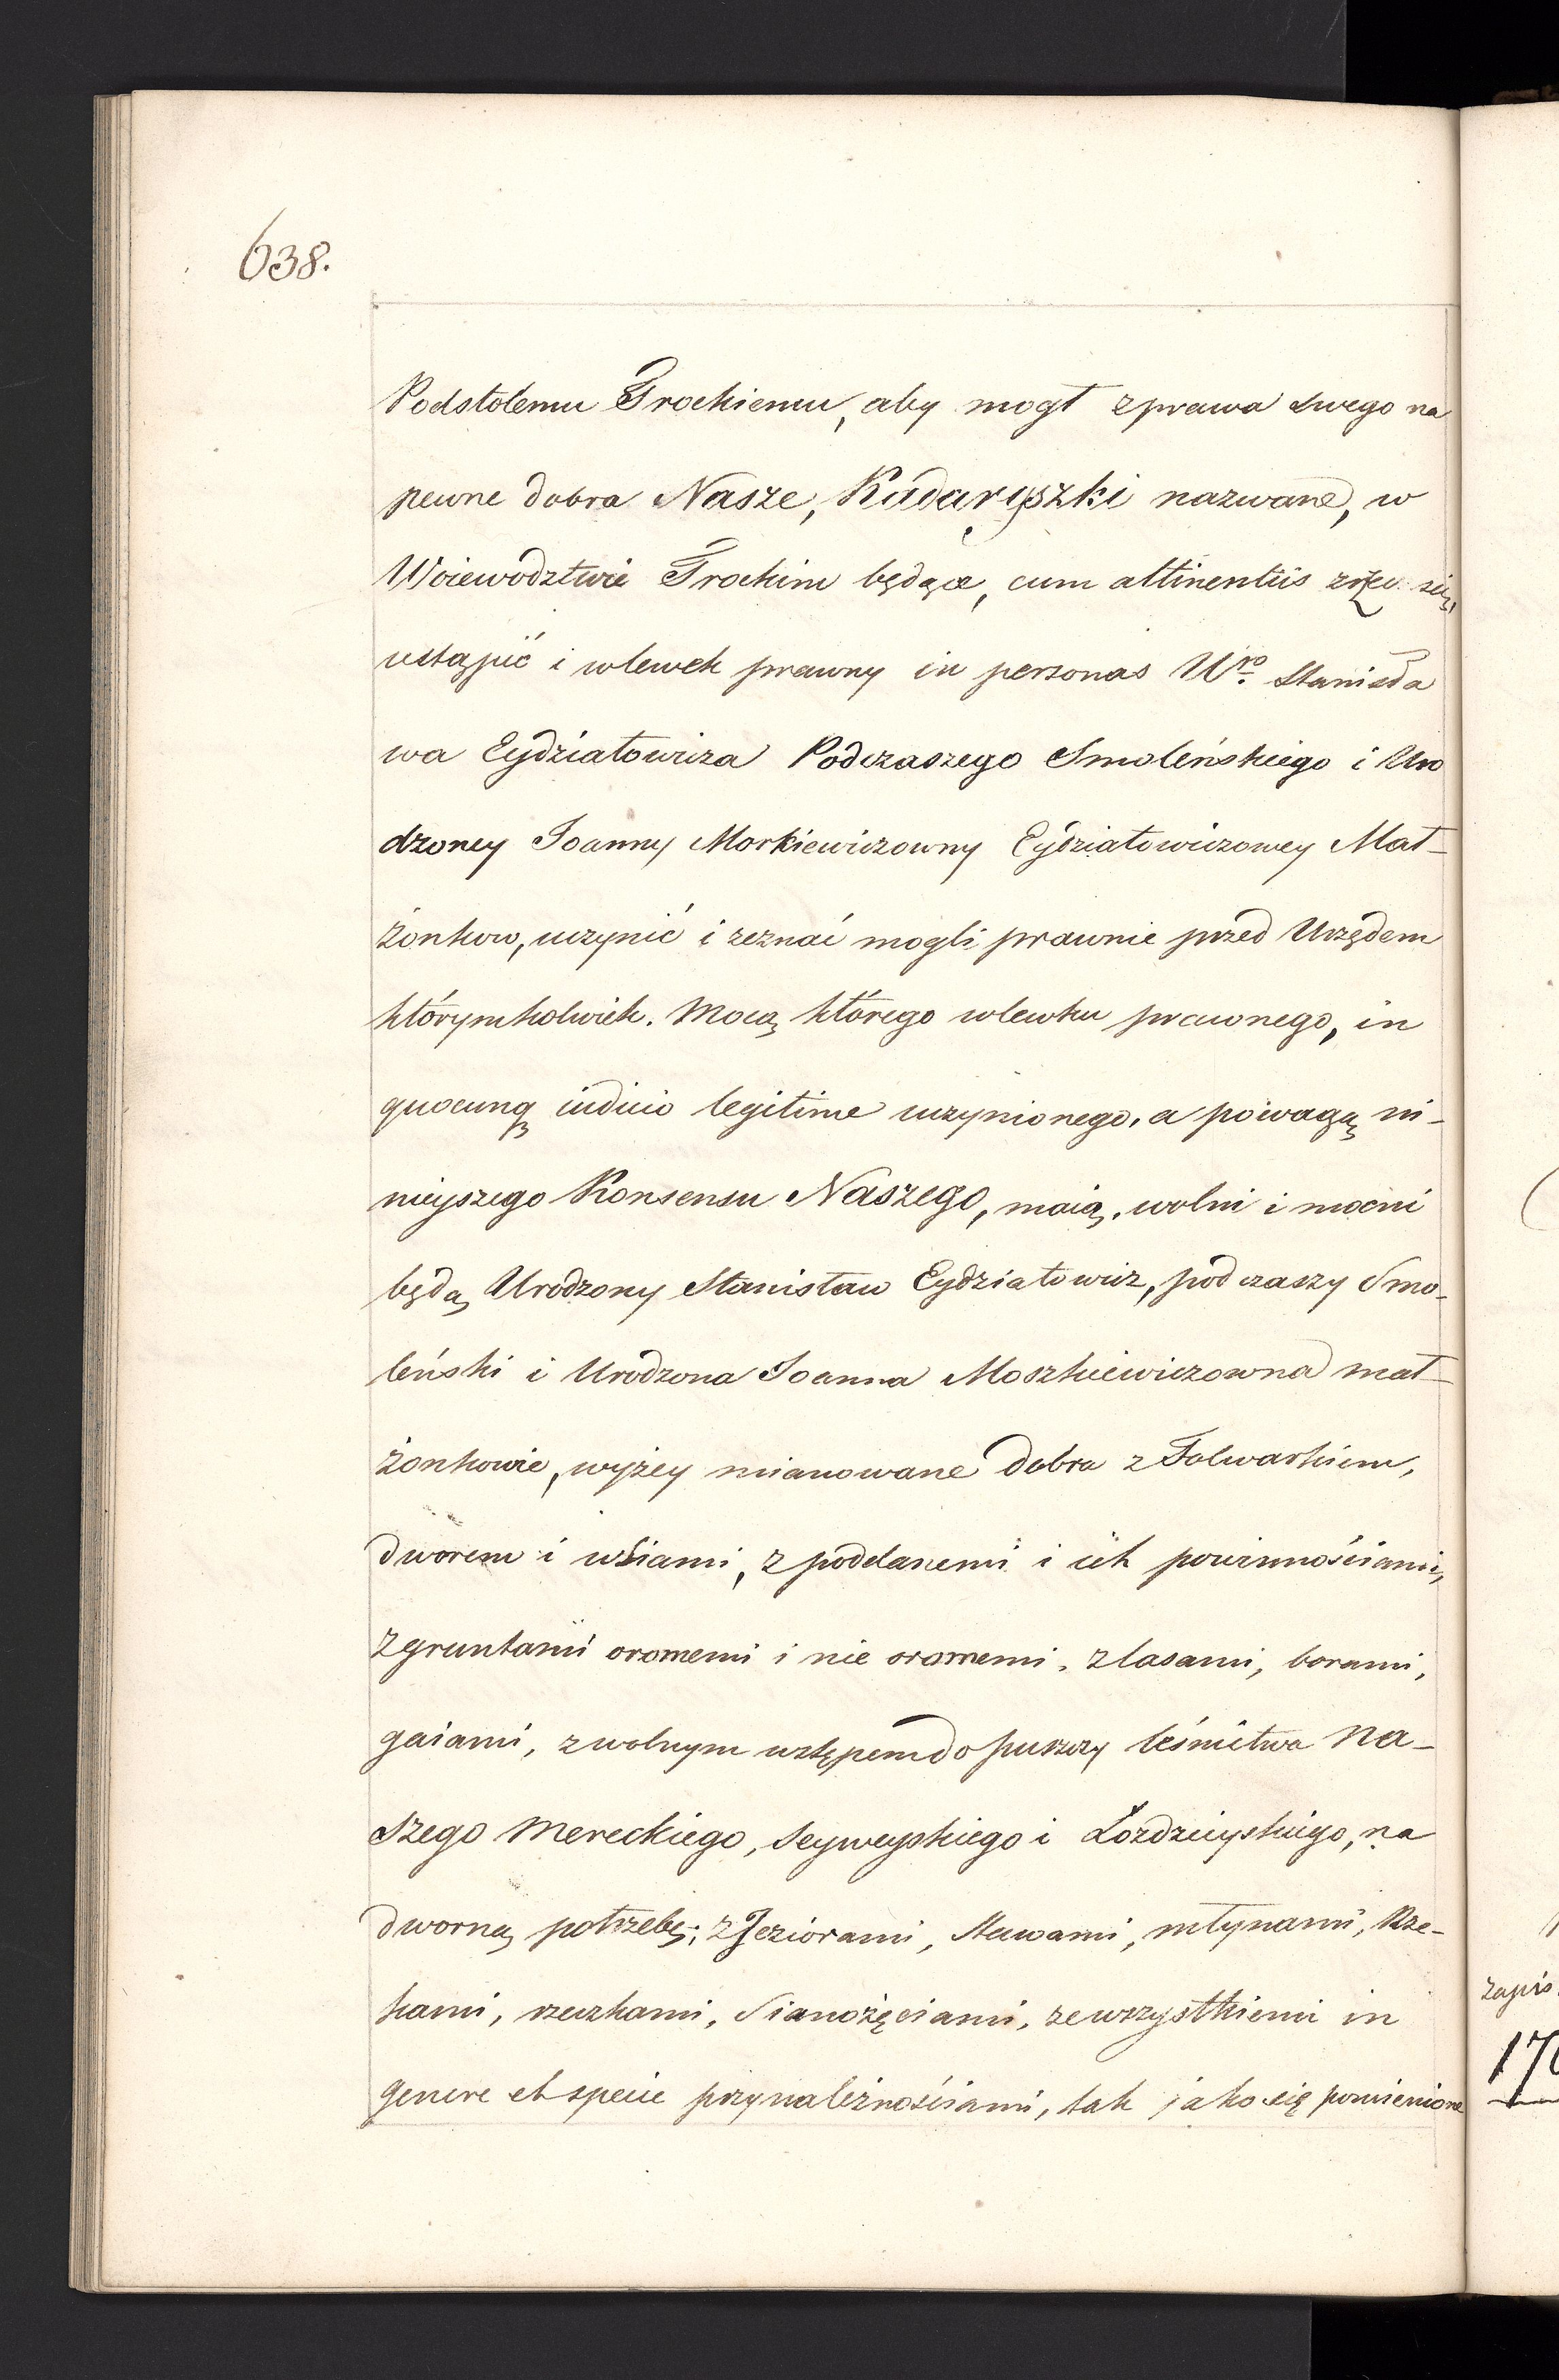 638.
Podstolemu Trockiemu, aby mogł z prawa swego na
pewne dobra Nasze, Kadaryszki nazwane, w
Woiewodztwie Trockim będące, cum attinentiis zrzec się,
ustąpić i wlewek prawny in personas Uro. Stanisła
wa Eydziatowicza Podczaszego Smoleńskiego i Uro
dzoney Joanny Morkiewiczowny Eydziatowiczowey Mał-
żonkow, uczynić i zeznać mogli prawnie przed Urzędem
którymkolwiek. Mocą którego wlewku prawnego, in
quocunq iudicio legitime uczynionego, a powagą ni-
nieyszego Konsensu Naszego, maią, wolni i mocni
będą Urodzony Stanisław Eydziatowicz, podczaszy Smo-
leński i Urodzona Joanna Moszkiewiczowna mał-
żonkowie, wyżey mianowane dobra z Folwarkiem,
dworem i wsiami, z poddanemi i ich powinnościami,
z gruntami oromemi i nie oromemi, z lasami, borami,
gaiami, z wolnym wstępem do puszczy leśnictwa Na-
szego Mereckiego, Seyweyskiego i Łozdzieyskiego, na
dworną potrzebę; z Jeziorami, stawami, młynami, Rze-
kami, rzeczkami, Sianożęciami, ze wszystkiemi in
genere et specie przynależnościami, tak jako się pomienione
zapis.
170